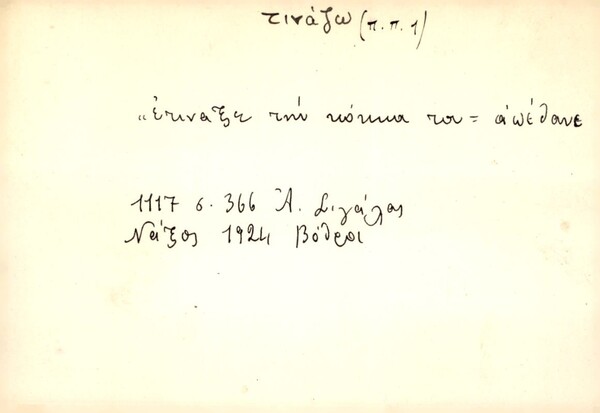 τινάζω (π.π.1)
"ἐτιναξε τὴν κόκκα του = ἀπέθανε
1117 σ. 366 Ἀ. Σιγάλας
Νάξος 1924 Βόθροι